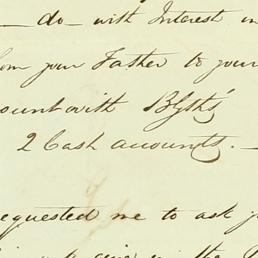 – do – with Interest in
from your Father to your
ount with Blyth's
2 Cash accounts. –
requested me to ask y